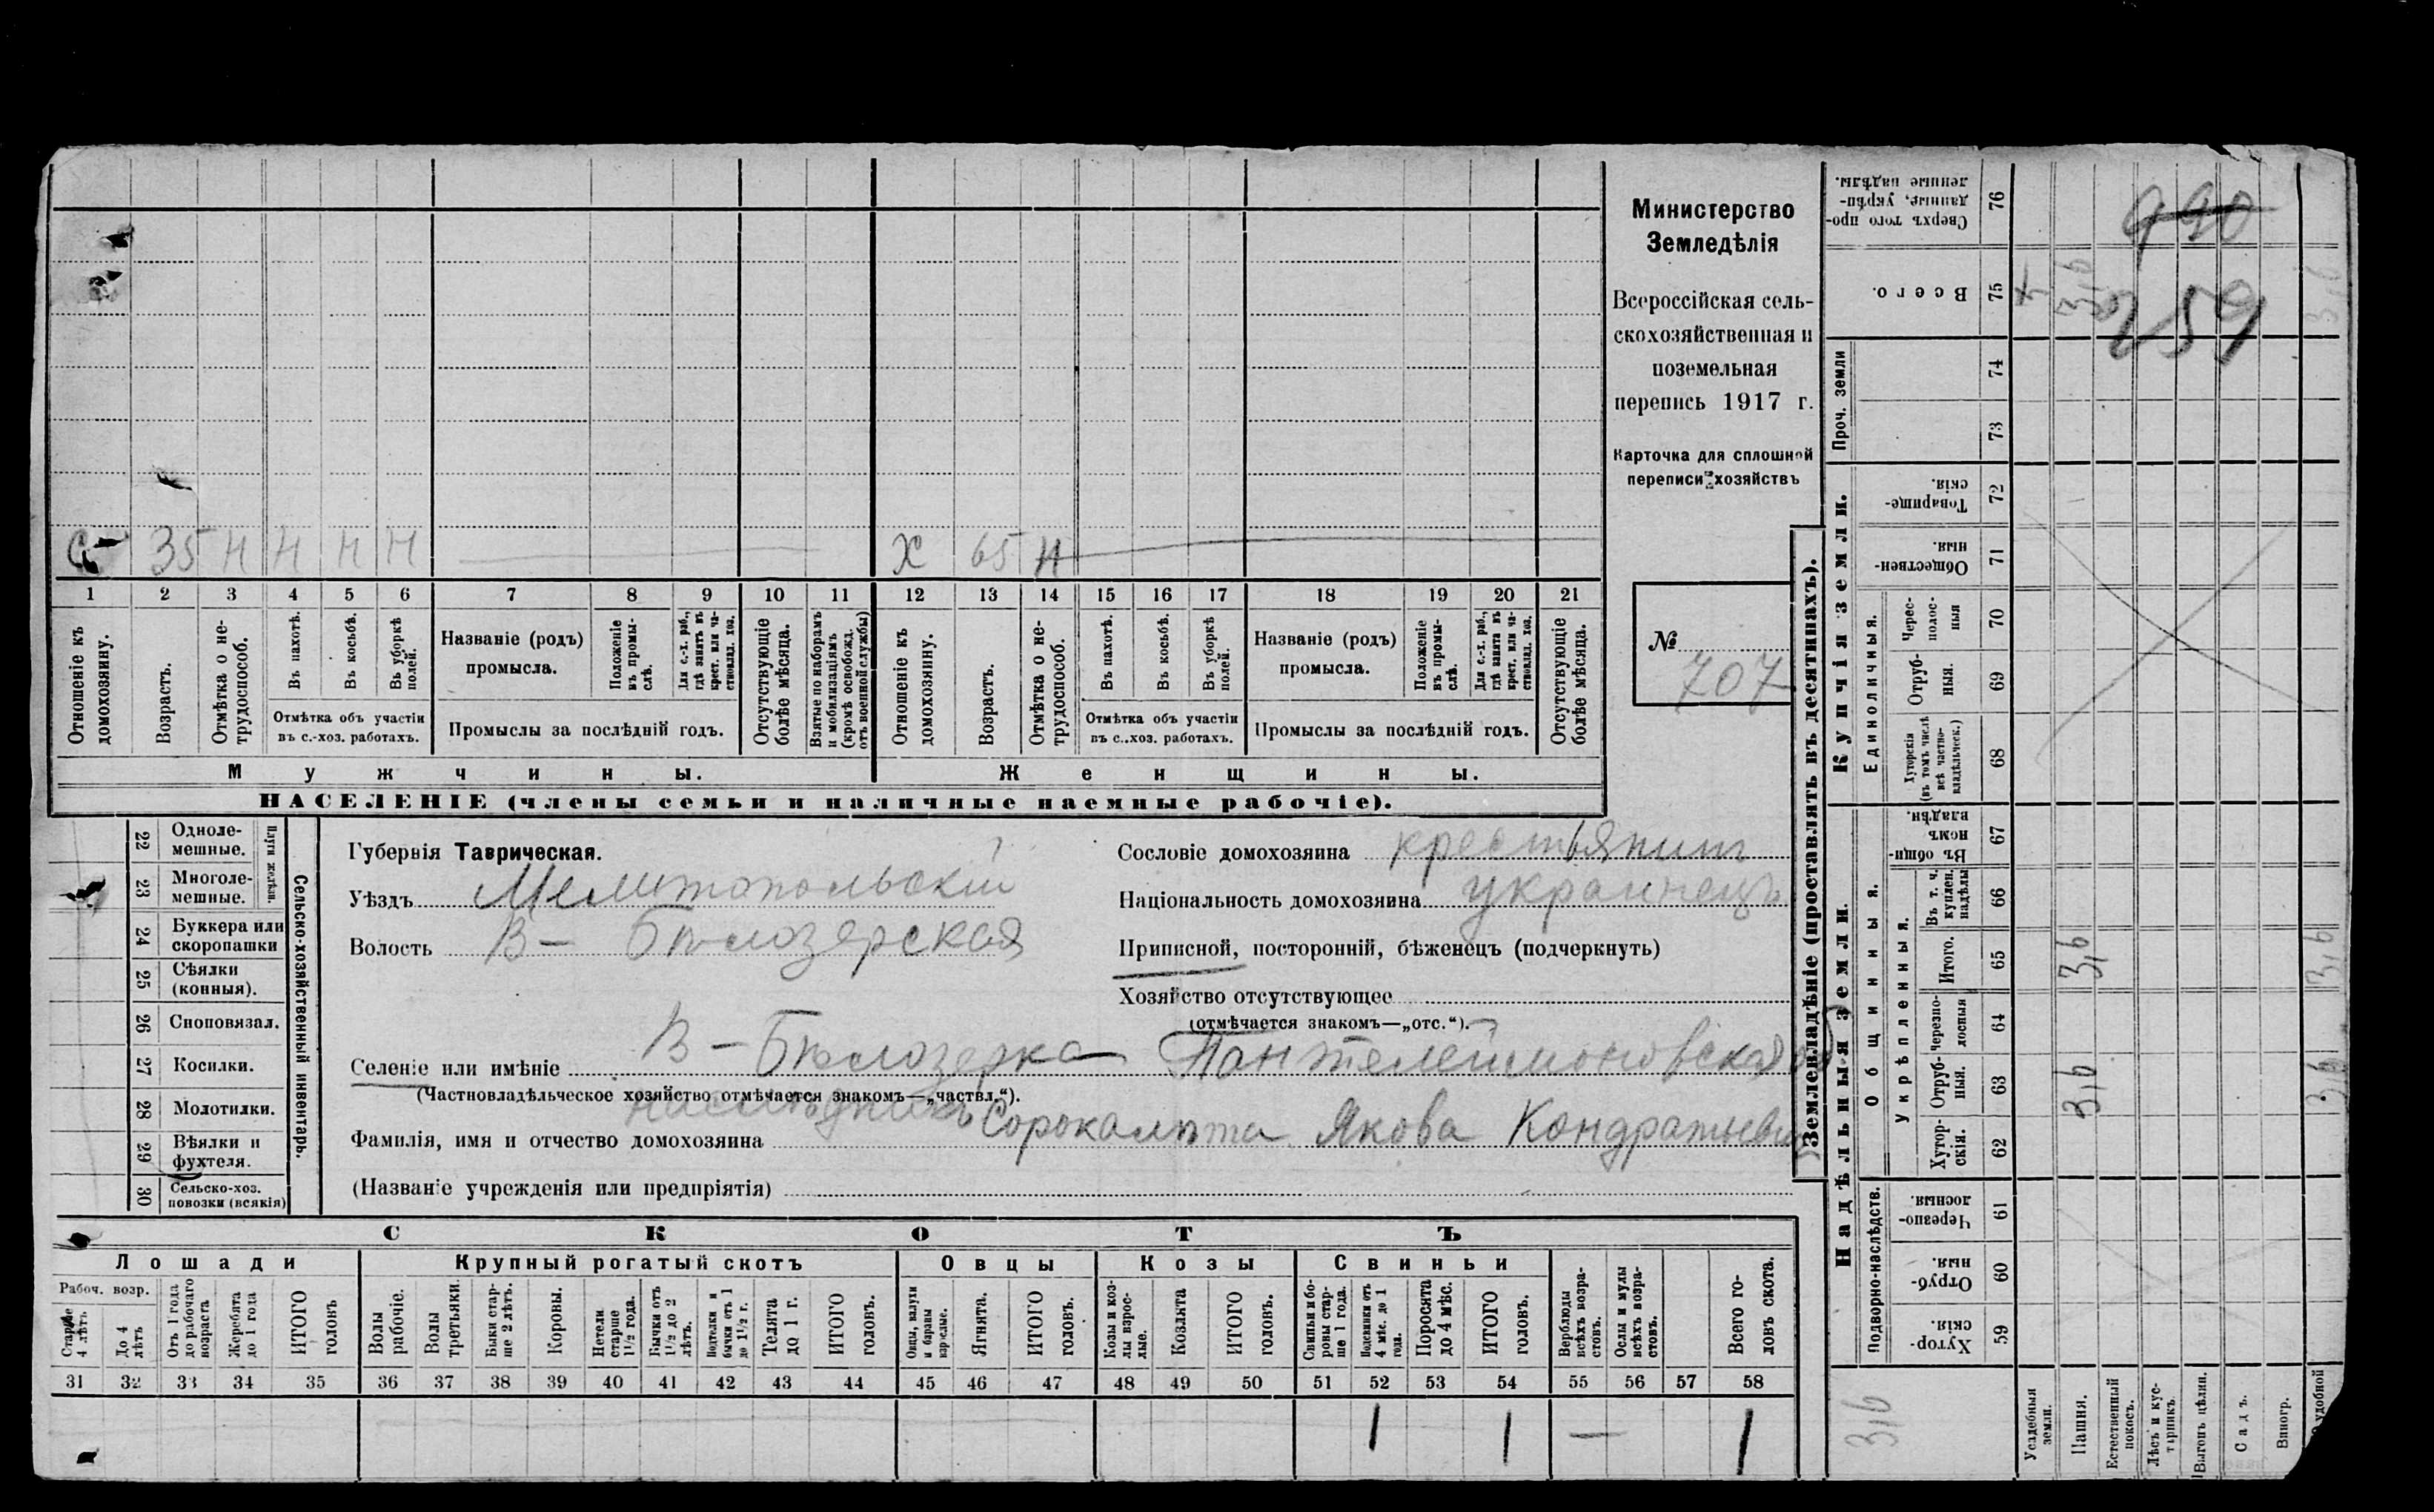 Министерство
Земледѣлія
Всероссійская сель-
скохозяйственная и
поземельная
перепись 1917 г.
Карточка для сплошной
переписи хозяйствъ
№ 707
С 35 Н Н Н Н Х 65 Н
1 2 3 4 5 6 7 8 9 10 11 12 13 14 15 16 17 18 19 20 21
Отношеніе къ домохозяину.
Возрастъ.
Отмѣтка о не-трудоспособ.
Въ пахотѣ.
Въ косьбѣ.
Въ уборкѣ полей.
Отмѣтка объ участіи
въ с.-хоз. работахъ.
Названіе (родъ)
промысла.
Положеніе въ промы-слѣ.
Для с.-х. раб., гдѣ занятъ въ крест. или ча-стновлад. хоз.
Промыслы за послѣдній годъ.
Отсутствующіе болѣе мѣсяца.
Взятые по наборамъ и мобилизаціямъ (кромѣ освобожд. отъ военной службы)
Отношеніе къ домохозяину.
Возрастъ.
Отмѣтка о не-трудоспособ.
Въ пахотѣ.
Въ косьбѣ.
Въ уборкѣ полей.
Отмѣтка объ участіи
въ с.-хоз. работахъ.
Названіе (родъ)
промысла.
Положеніе въ промы-слѣ.
Для с.-х. раб., гдѣ занята въ крест. или ча-стновлад. хоз.
Промыслы за послѣдній годъ.
Отсутствующіе болѣе мѣсяца.
Мужчины. Женщины.
НАСЕЛЕНІЕ (члены семьи и наличные наемные рабочіе).
Сельско-хозяйственный инвентарь.
Плуги желѣзн.
22 Одноле-мешные.
23 Многоле-мешные.
24 Буккера или скоропашки
25 Сѣялки (конныя).
26 Сноповязал.
27 Косилки.
28 Молотилки.
29 Вѣялки и фухтеля.
30 Сельско-хоз. повозки (всякія)
Губернія Таврическая.
Уѣздъ Мелитопольскій
Волость В-Бѣлозерская
Сословіе домохозяина крестьянин
Національность домохозяина украинецъ
Приписной, посторонній, бѣженецъ (подчеркнуть)
Хозяйство отсутствующее
(отмѣчается знакомъ—„отс.“).
Селеніе или имѣніе В-Бѣлозерка Пантелеймоновская
(Частновладѣльческое хозяйство отмѣчается знакомъ—„частвл.“).
Фамилія, имя и отчество домохозяина Сорокалѣта Якова Кондратьевича
(Названіе учрежденія или предпріятія)
СКОТЪ
Лошади Крупный рогатый скотъ Овцы Козы Свиньи
Рабоч. возр.
Старше 4 лѣтъ
До 4 лѣтъ
Отъ 1 года до рабочаго возраста
Жеребята до 1 года
ИТОГО головъ
Волы рабочіе.
Волы третьяки.
Быки стар-ше 2 лѣтъ.
Коровы.
Нетели старше 1½ года.
Бычки отъ 1½ до 2 лѣтъ.
Подтелки и бычки отъ 1 до 1½ г.
Телята до 1 г.
ИТОГО головъ.
Овцы, валухи и бараны взрослые.
Ягнята.
ИТОГО головъ.
Козы и коз-лы взрос-лые.
Козлята
ИТОГО головъ.
Свиньи и бо-ровы стар-ше 1 года.
Подсвинки отъ 4 мѣс. до 1 года.
Поросята до 4 мѣс.
ИТОГО головъ.
Верблюды всѣхъ возра-стовъ.
Ослы и мулы всѣхъ возра-стовъ.
Всего го-ловъ скота.
31 32 33 34 35 36 37 38 39 40 41 42 43 44 45 46 47 48 49 50 51 52 53 54 55 56 57 58
1 1 — 1
Землевладѣніе (проставлять въ десятинахъ).
Надѣльныя земли. Купчія земли. Проч. земли
Подворно-наслѣдств.
Общинныя.
Укрѣпленныя.
Единоличныя.
59 Хутор-скія.
60 Отруб-ныя.
61 Черезпо-лосныя
62 Хутор-скія.
63 Отруб-ныя.
64 Черезпо-лосныя
65 Итого.
66 Въ т. ч. куплен. надѣлы
67 Въ общин-номъ владѣн.
68 Хуторскія (въ томъ числѣ всѣ частно-владѣльческ.)
69 Отруб-ныя.
70 Черес-полос-ныя
71 Обществен-ныя.
72 Товарище-скія.
73
74
75 Всего.
76 Сверхъ того про-данные, укрѣп-ленные надѣлы.
Усадебныя земли.
Пашня.
Естественный покосъ.
Лѣсъ и кус-тарникъ.
Выгонъ цѣлин.
Садъ.
Виногр.
удобной
259